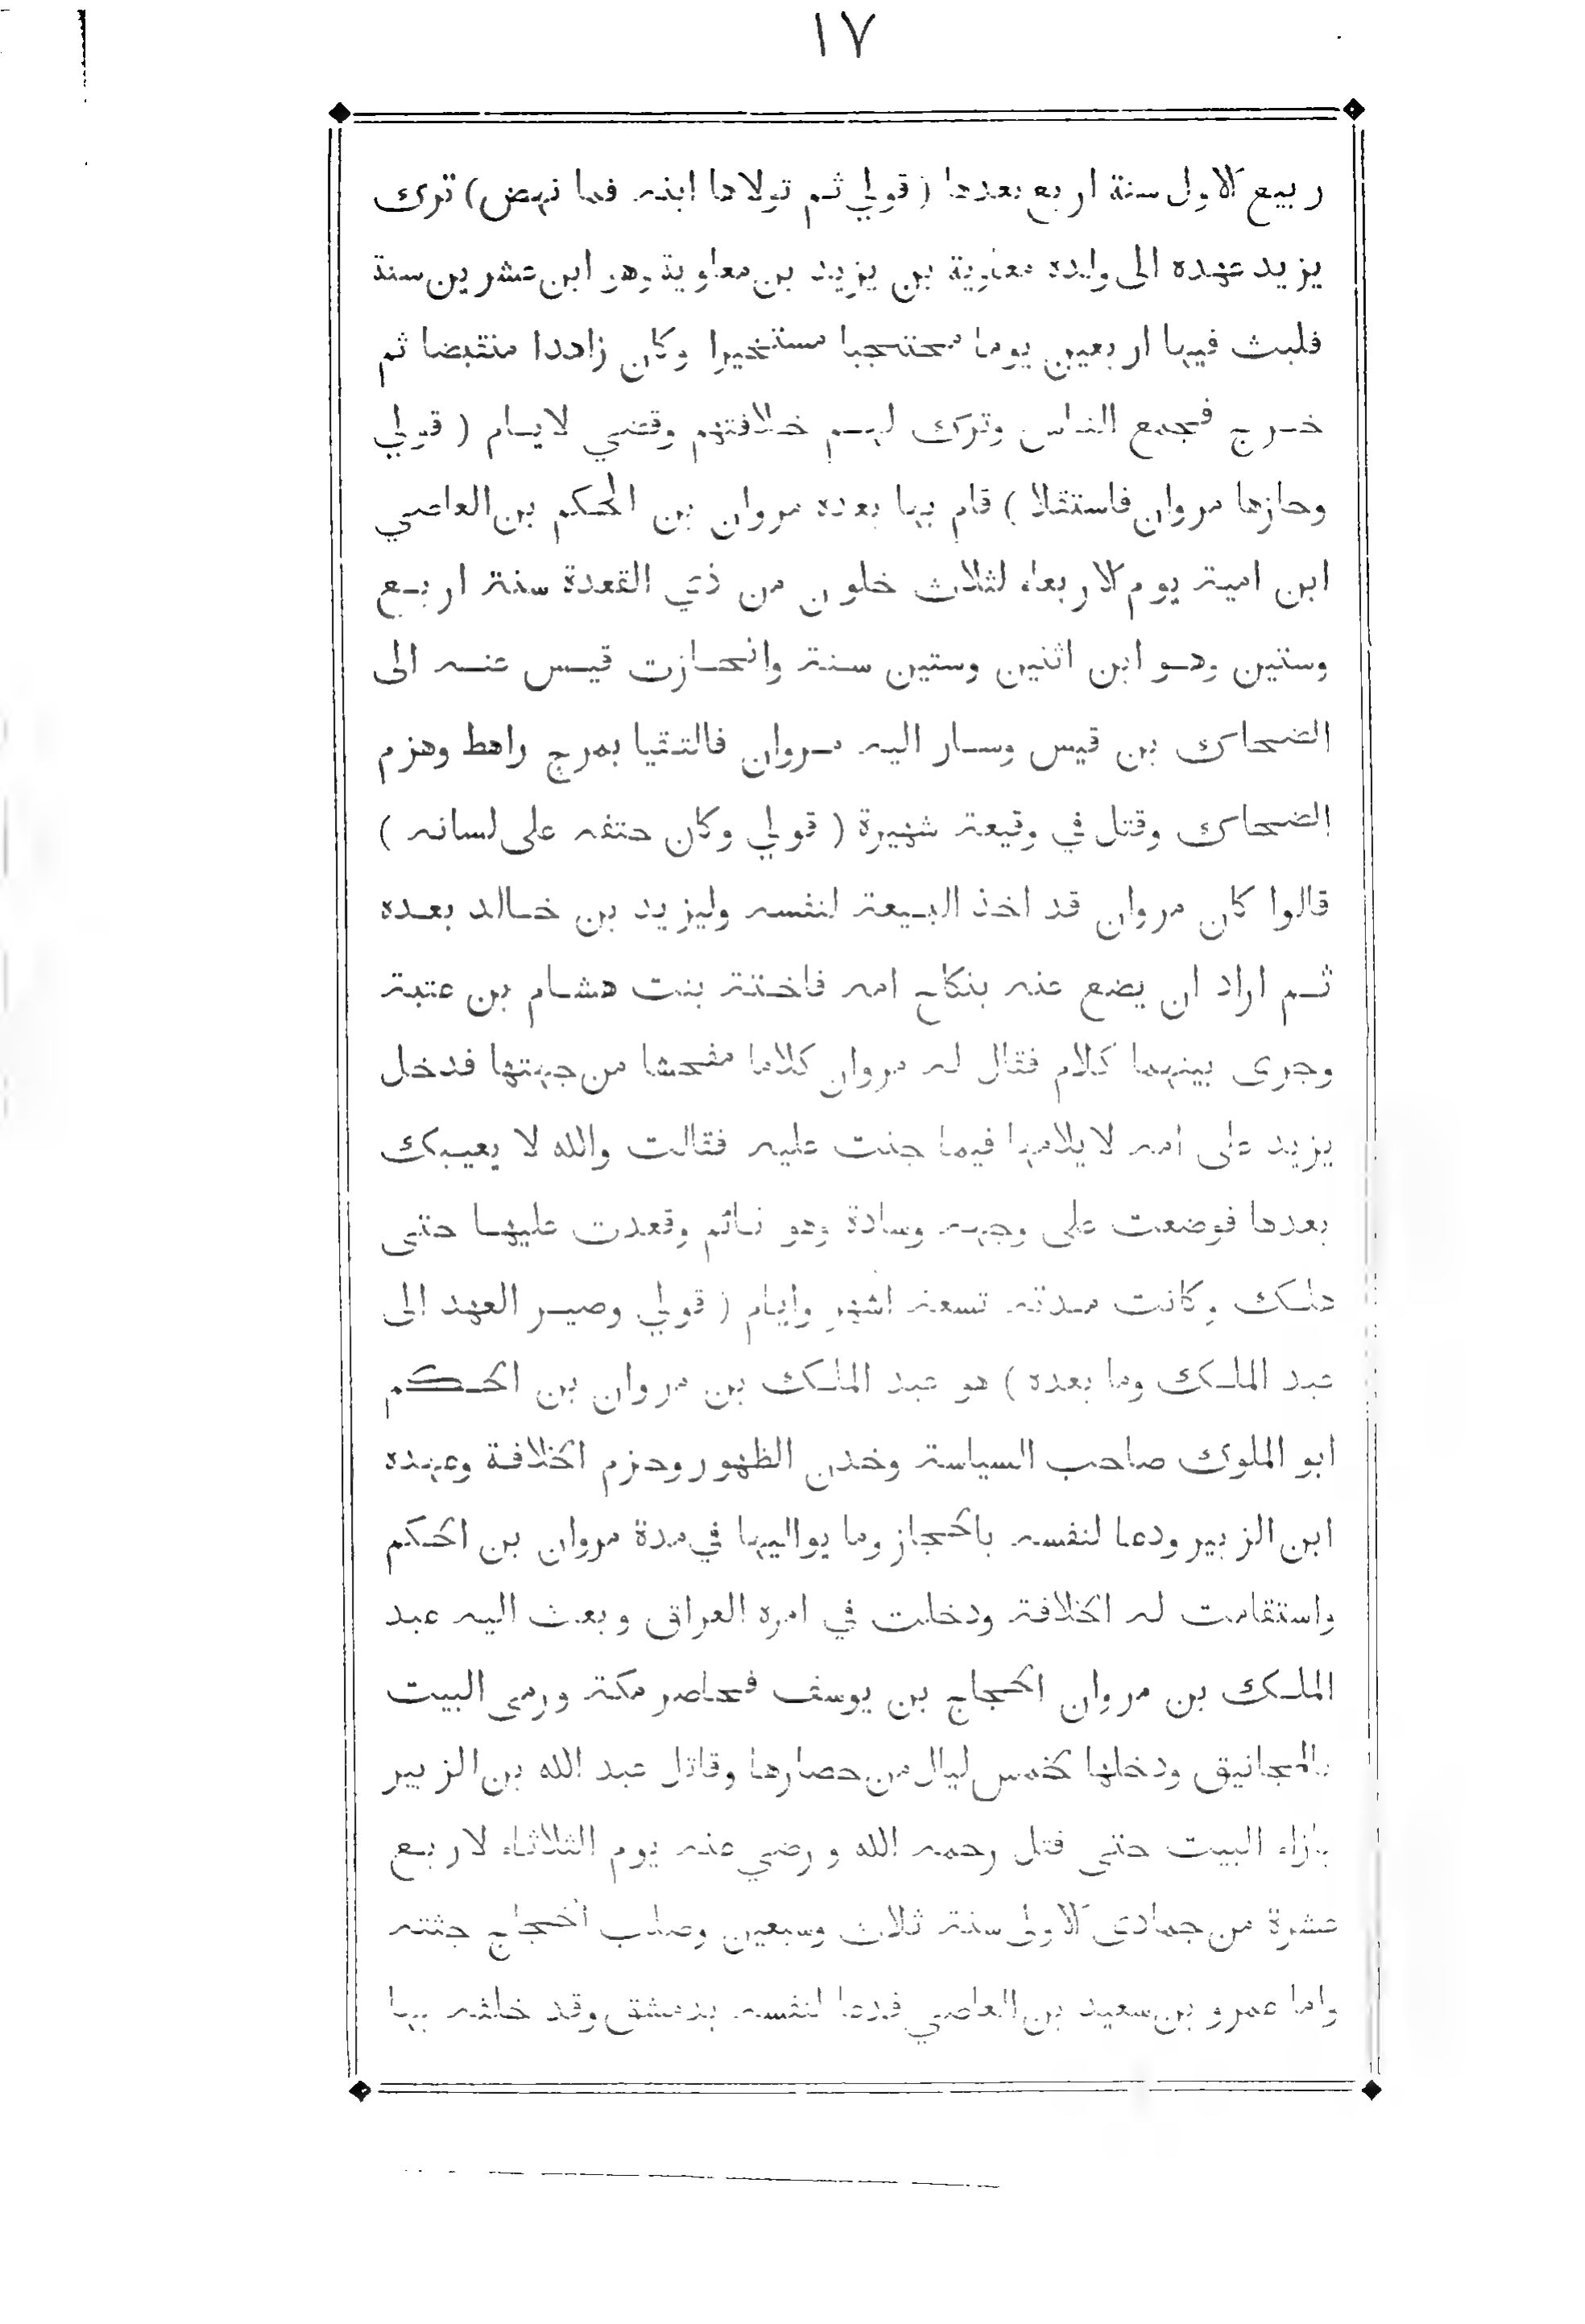 ١٧
ربيع الاول سنة اربع بعدها ( قولي ثم تولاها ابنه فما نهض) ترك
يزيد عهده الى ولده معاوية بن يزيد بن معاوية وهو ابن عشرين سنة
فلبث فيها اربعين يوما محتجبا مستخيرا وكان زاهدا منقبضا ثم
خرج فجمع الناس وترك لهم خلافتهم وقضي لايام ( قولي
وحازها مروان فاستقلا ) قام بها بعده مروان بن الحكم بن العاصي
ابن امية يوم الاربعاء لثلاث خلون من ذي القعدة سنة اربع
وستين وهو ابن اثنين وستين سنة وانحازت قيس عنه الى
الضحاك بن قيس وسار اليه مروان فالتقيا بمرج راهط وهزم
الضحاك وقتل في وقيعة شهيرة ( قولي وكان حتفه على لسانه )
قالوا كان مروان قد اخذ البيعة لنفسه وليزيد بن خالد بعده
ثم اراد ان يضع عنه بنكاح امه فاختة بنت هشام بن عتبة
وجرى بينهما كلام فقال له مروان كلاما مفحشا من جهتها فدخل
يزيد على امه لايلامها فيما جنت عليه فقالت والله لا يعيبك
بعدها فوضعت على وجهه وسادة وهو نائم وقعدت عليها حتى
هلك وكانت مدته تسعة اشهر وايام ( قولي وصير العهد الى
عبد الملك وما بعده ) هو عبد الملك بن مروان بن الحكم
ابو الملوك صاحب السياسة وخدن الظهور وحزم الخلافة وعهده
ابن الزبير ودعا لنفسه بالحجاز وما يواليها في مدة مروان بن الحكم
واستقامت له الخلافة ودخلت في امره العراق وبعث اليه عبد
الملك بن مروان الحجاج بن يوسف فحاصر مكة ورمى البيت
بالمجانيق ودخلها لخمس ليال من حصارها وقاتل عبد الله بن الزبير
بازاء البيت حتى قتل رحمه الله ورضي عنه يوم الثلاثاء لاربع
عشرة من جمادى الاولى سنة ثلاث وسبعين وصلب الحجاج جثته
واما عمرو بن سعيد بن العاصي فدعا لنفسه بدمشق وقد خلفه بها